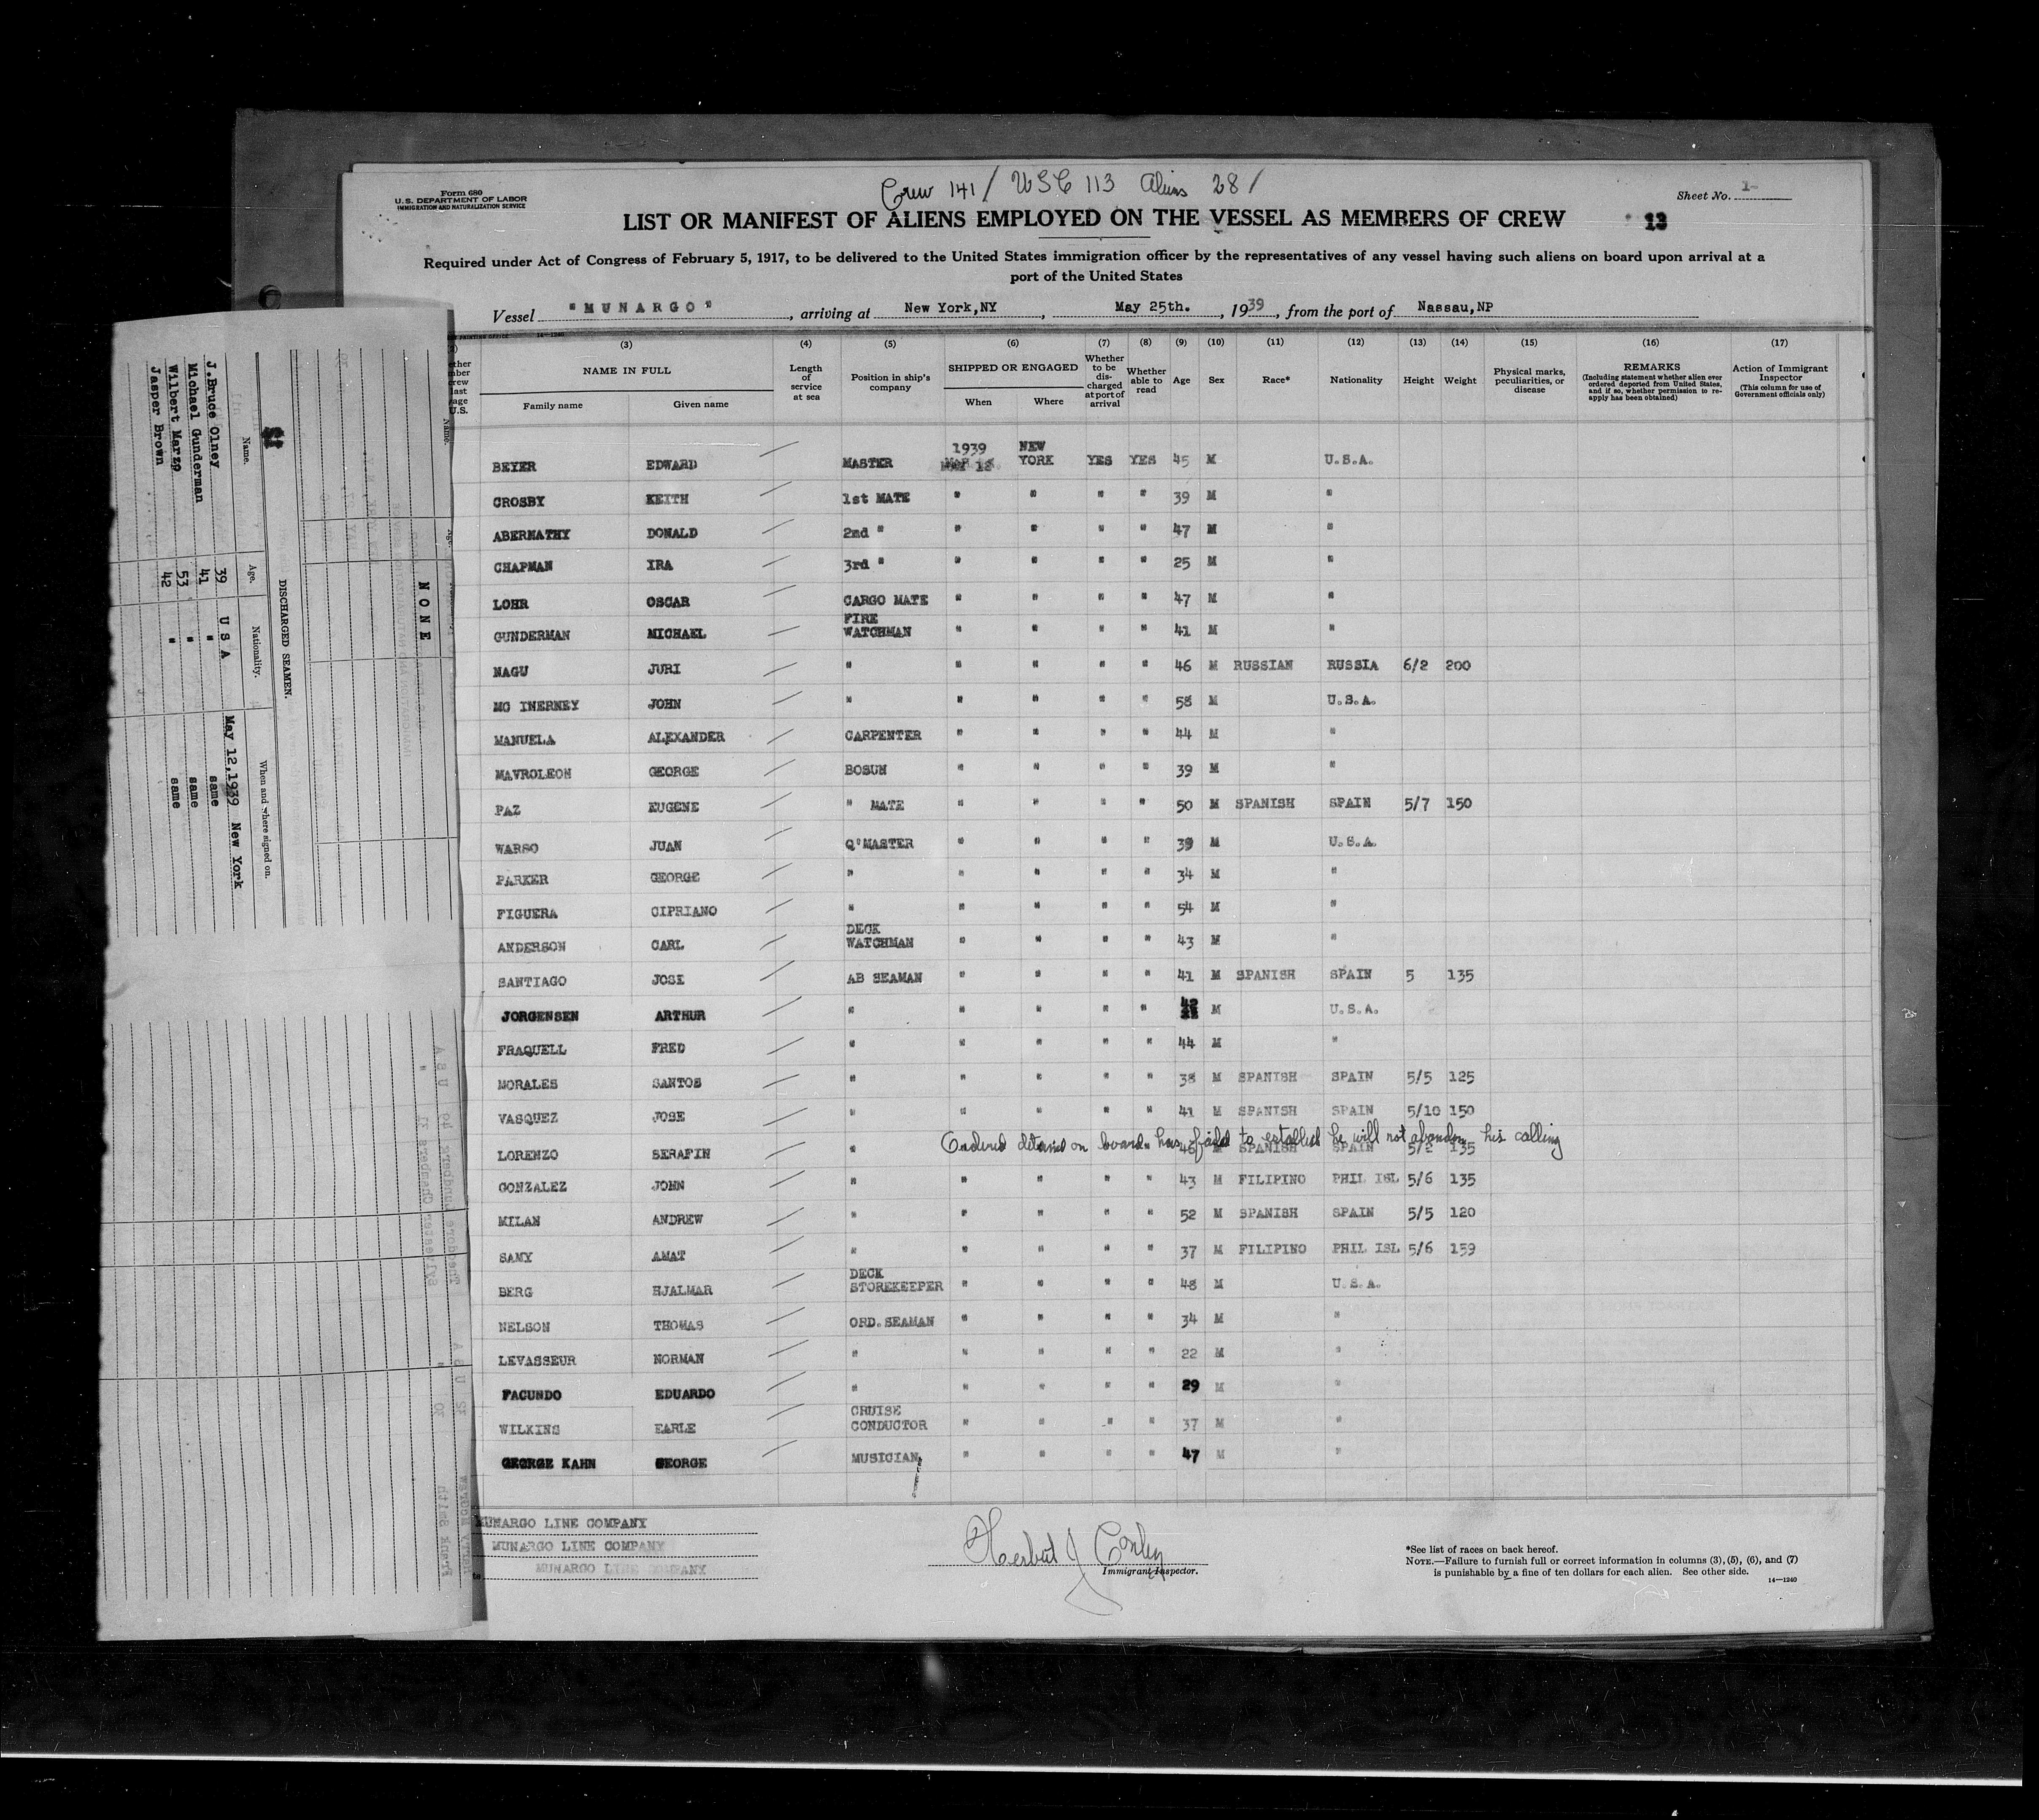 Form 680
U.S. DEPARTMENT OF LABOR
IMMIGRATION AND NATURALIZATION SERVICE
Crew 141 / USC 113 Aliens 28 /
Sheet No. 1-
LIST OR MANIFEST OF ALIENS EMPLOYED ON THE VESSEL AS MEMBERS OF CREW
13
Required under Act of Congress of February 5, 1917, to be delivered to the United States immigration officer by the representatives of any vessel having such aliens on board upon arrival at a
port of the United States
Vessel "MUNARGO", arriving at New York,NY, May 25th., 1939, from the port of Nassau,NP
(3) (4) (5) (6) (7) (8) (9) (10) (11) (12) (13) (14) (15) (16) (17)
NAME IN FULL
Family name Given name
Length of service at sea
Position in ship's company
SHIPPED OR ENGAGED
When Where
Whether to be discharged at port of arrival
Whether able to read
Age
Sex
Race*
Nationality
Height
Weight
Physical marks, peculiarities, or disease
REMARKS
(Including statement whether alien ever ordered deported from United States, and if so, whether permission to reapply has been obtained)
Action of Immigrant Inspector
(This column for use of Government officials only)
BEYER EDWARD MASTER 1939 NEW YORK YES YES 45 M U.S.A.
CROSBY KEITH 1st MATE " " " " 39 M "
ABERNATHY DONALD 2nd " " " " " 47 M "
CHAPMAN IRA 3rd " " " " " 25 M "
LOHR OSCAR CARGO MATE " " " " 47 M "
GUNDERMAN MICHAEL FIRE WATCHMAN " " " " 41 M "
NAGU JURI " " " " " 46 M RUSSIAN RUSSIA 6/2 200
MC INERNEY JOHN " " " " " 58 M U.S.A.
MANUELA ALEXANDER CARPENTER " " " " 44 M "
MAVROLEON GEORGE BOSUN " " " " 39 M "
PAZ EUGENE " MATE " " " " 50 M SPANISH SPAIN 5/7 150
WARSO JUAN Q'MASTER " " " " 39 M U.S.A.
PARKER GEORGE " " " " " 34 M "
FIGUERA CIPRIANO " " " " " 54 M "
ANDERSON CARL DECK WATCHMAN " " " " 43 M "
SANTIAGO JOSE AB SEAMAN " " " " 41 M SPANISH SPAIN 5 135
JORGENSEN ARTHUR " " " " " M U.S.A.
FRAQUELL FRED " " " " " 44 M "
MORALES SANTOS " " " " " 38 M SPANISH SPAIN 5/5 125
VASQUEZ JOSE " " " " " 41 M SPANISH SPAIN 5/10 150
Ordered detained on board - has failed to establish he will not abandon his calling
LORENZO SERAFIN " 46 M SPANISH SPAIN 5/2 135
GONZALEZ JOHN " " " " " 43 M FILIPINO PHIL ISL 5/6 135
MILAN ANDREW " " " " " 52 M SPANISH SPAIN 5/5 120
SAMY AMAT " " " " " 37 M FILIPINO PHIL ISL 5/6 159
BERG HJALMAR DECK STOREKEEPER " " " " 48 M U.S.A.
NELSON THOMAS ORD.SEAMAN " " " " 34 M "
LEVASSEUR NORMAN " " " " " 22 M "
FACUNDO EDUARDO " " " " " 29 M "
WILKINS EARLE CRUISE CONDUCTOR " " " " 37 M "
GEORGE KAHN GEORGE MUSICIAN " " " " 47 M "
MUNARGO LINE COMPANY
MUNARGO LINE COMPANY
MUNARGO LINE COMPANY
Herbert J Conley
Immigrant Inspector.
*See list of races on back hereof.
NOTE.—Failure to furnish full or correct information in columns (3), (5), (6), and (7)
is punishable by a fine of ten dollars for each alien. See other side.
14—1240
NONE
DISCHARGED SEAMEN.
Name. Age. Nationality. When and where signed on.
J.Bruce Olney 39 U S A May 12,1939 New York
Michael Gunderman 41 " same
Wilbert Marzo 53 " same
Jasper Brown 42 " same